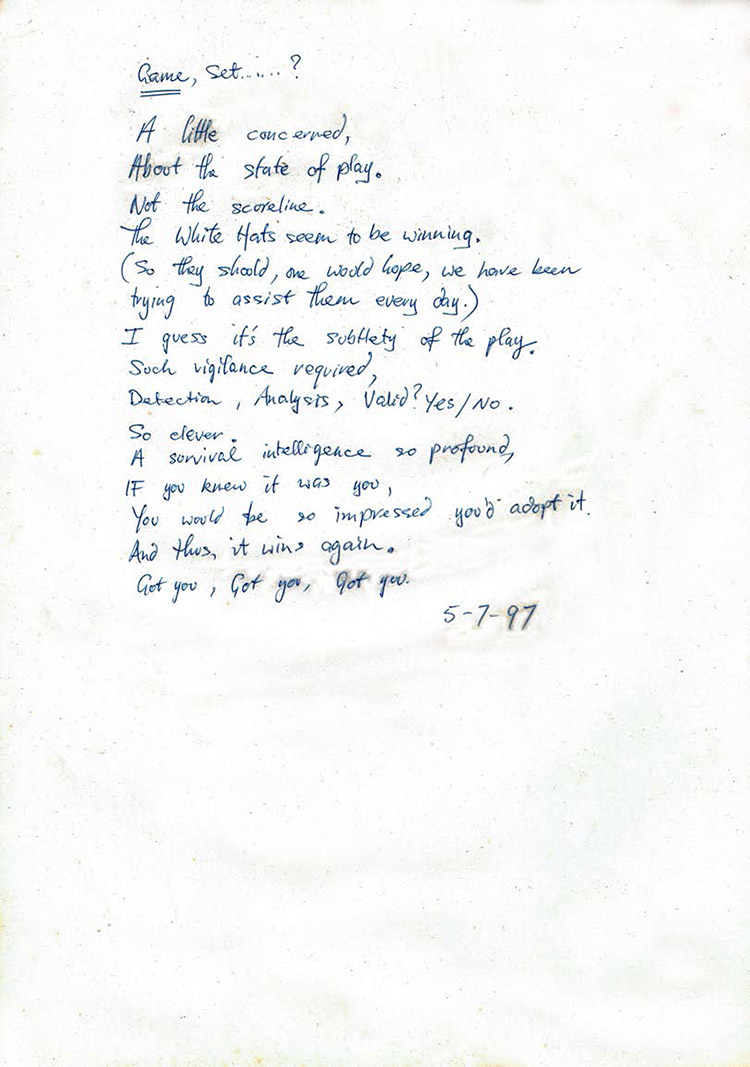 Game, Set......?
A little concerned,
About the state of play.
Not the scoreline.
The White Hats seem to be winning.
(So they should, one would hope, we have been
trying to assist them every day.)
I guess it's the subtlety of the play.
Such vigilance required,
Detection, Analysis, Valid? Yes/No.
So clever.
A survival intelligence so profound,
IF you knew it was you,
You would be so impressed you'd adopt it.
And thus, it wins again.
Got you, Got you, Got you.
5-7-97